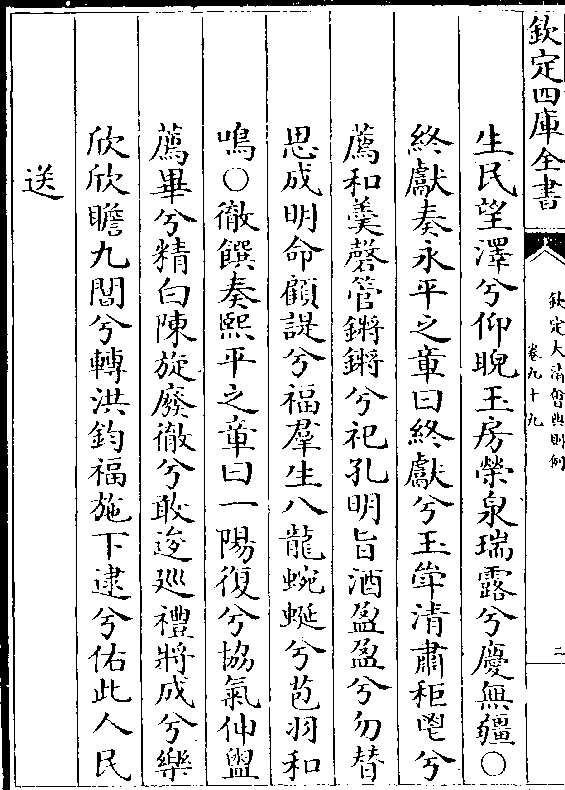 欽定四庫全書
欽定大清會典則例
卷九十九
二
生民望澤兮仰睨玉房榮泉瑞露兮慶無疆○
終獻奏永平之章曰終獻兮玉斝清肅秬鬯兮
薦和羮磬管鏘鏘兮祀孔明旨酒盈盈兮勿替
思成明命顧諟兮福羣生八龍蜿蜒兮苞羽和
鳴○徹饌奏熙平之章曰一陽復兮協氣伸盥
薦畢兮精白陳旋廢徹兮敢逡廵禮將成兮樂
欣欣瞻九閽兮轉洪鈞福施下逮兮佑此人民
送